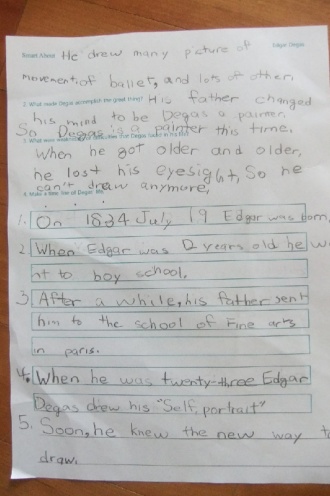 Edgar Degas
He drew many picture of
movement of ballet, and lots of other.
2. What made Degas accomplish the great thing? His father changed
his mind to be Degas a painter.
So Degas is a painter this time.
When he got older and older,
he lost his eyesight, So he
can't draw anymore,
4. Make a time line of Degas' life.
1. On 1834 July 19 Edgar was born,
2 When Edgar was 12 years old he we
nt to boy school,
3 After a while, his father sent
him to the school of Fine arts
in paris.
4. When he was twenty-three Edgar
Degas drew his "Self, portrait"
5. Soon, he knew the new way to
draw.